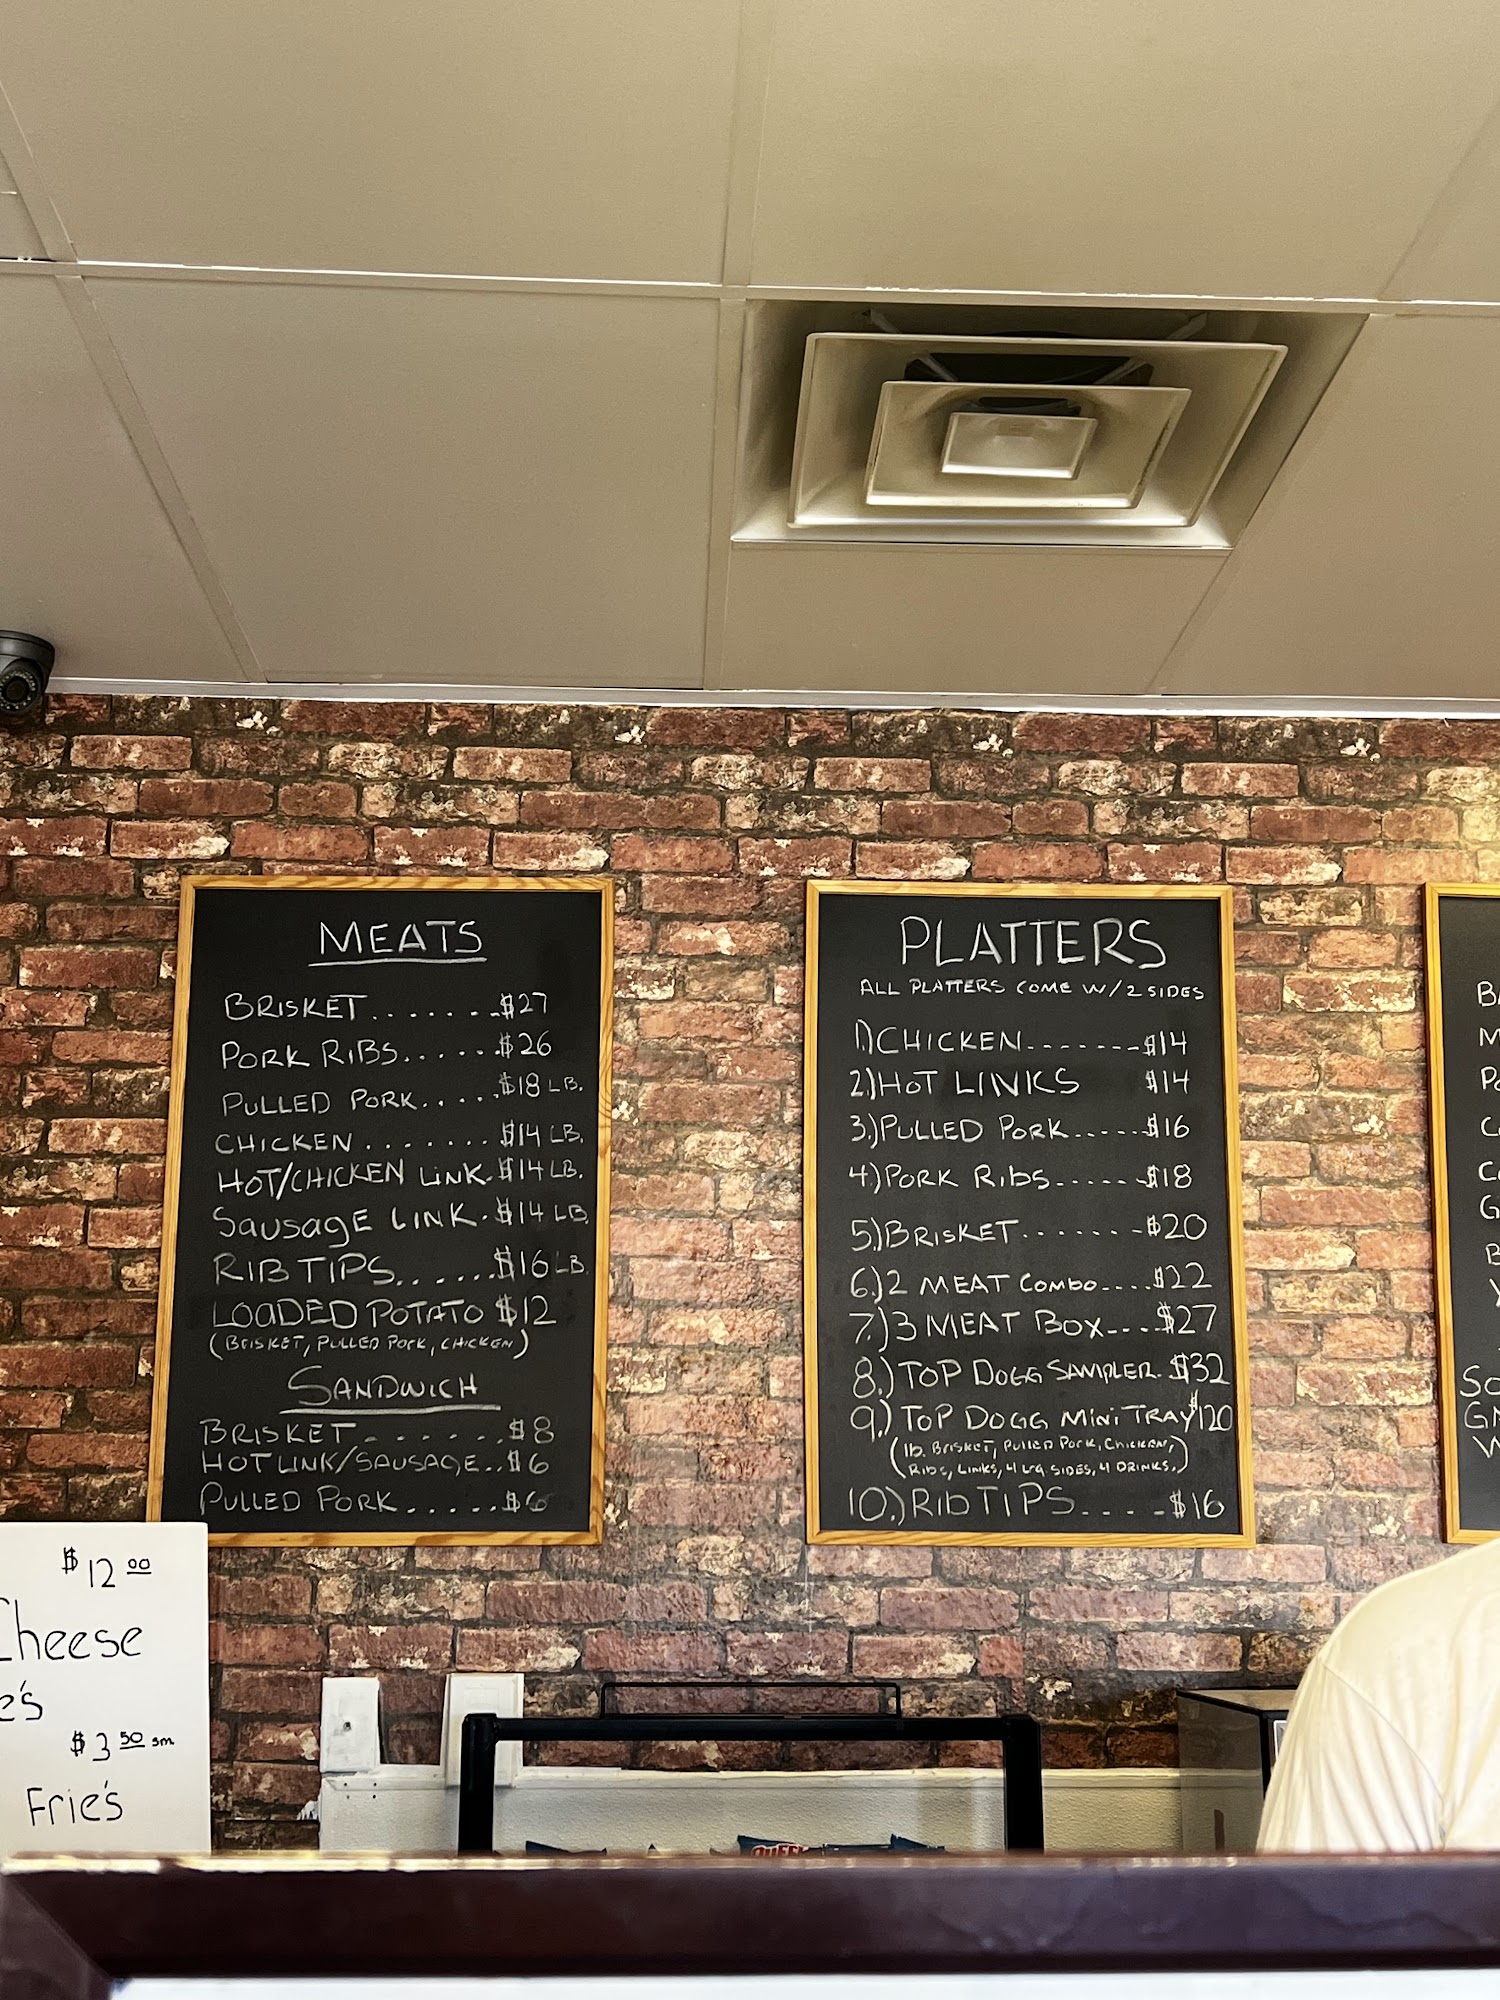 MEATS
BRISKET.......$27
PORK RIBS......$26
PULLED PORK.....$18 LB.
CHICKEN.......$14 LB.
HOT/CHICKEN LINK.$14 LB.
SAUSAGE LINK.$14 LB.
RIB TIPS......$16 LB.
LOADED POTATO $12
(BRISKET, PULLED PORK, CHICKEN)
SANDWICH
BRISKET.......$8
HOT LINK/SAUSAGE..$6
PULLED PORK.....$6
PLATTERS
ALL PLATTERS COME W/2 SIDES
1.)CHICKEN-------$14
2.)HOT LINKS $14
3.)PULLED PORK.....$16
4.)PORK RIBS......$18
5.)BRISKET.......$20
6.)2 MEAT COMBO....$22
7.)3 MEAT BOX....$27
8.)TOP DOGG SAMPLER.$32
9.)TOP DOGG MINI TRAY $120
(1lb. BRISKET, PULLED PORK, CHICKEN,
RIBS, LINKS, 4 LRG. SIDES, 4 DRINKS.)
10.)RIB TIPS....$16
$12 00
Cheese
e's
$3 50 sm
Frie's